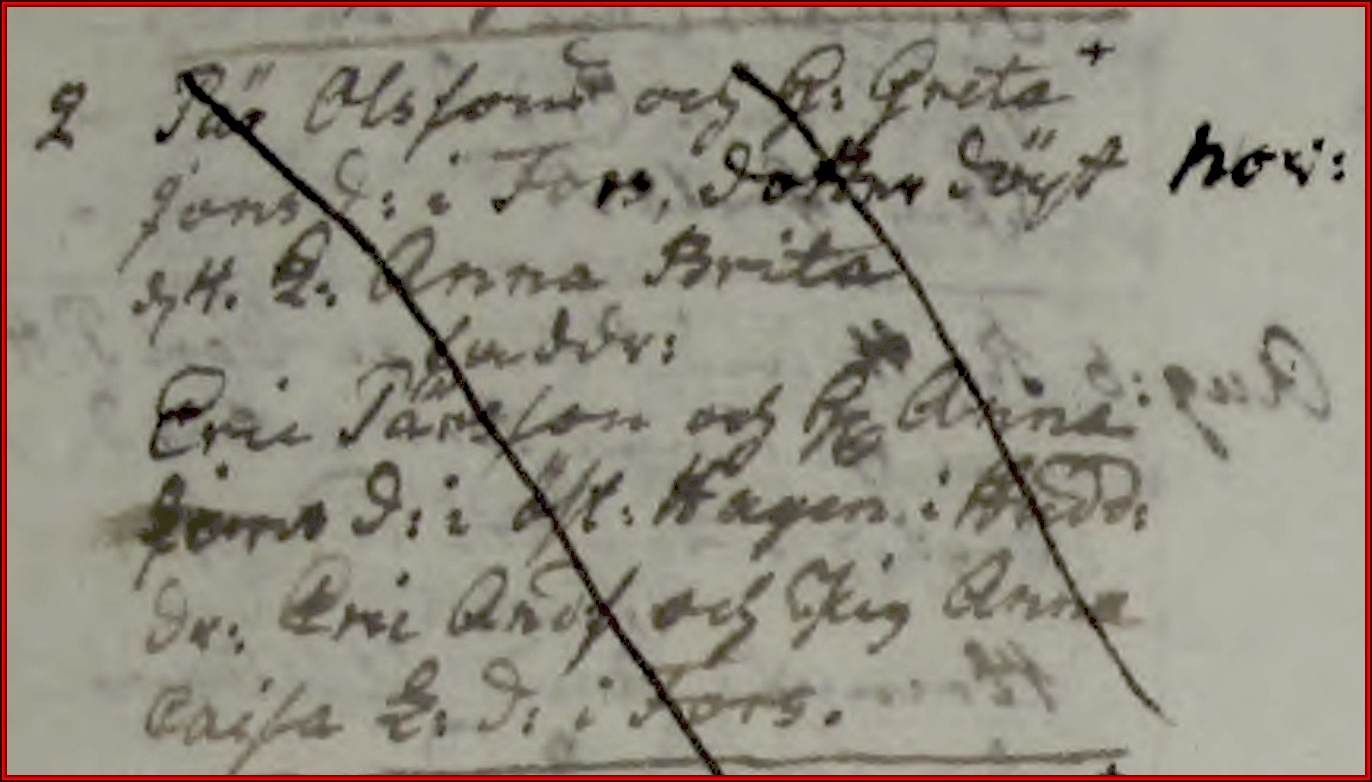 2 Pär Olsson och H: Greta +
Jons d: i Fors, dotter döpt nov:
d 4. Anna Brita
faddr:
Eric Pärsson och H: Anna
Jons d: i öst. Hagen i
dr: Eric And och Pig Anna
Caisa E: d: i Fors.